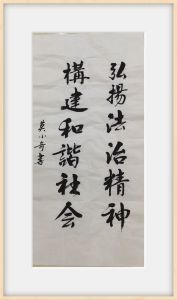 弘揚法治精神
構建和諧社会
莫小奇書